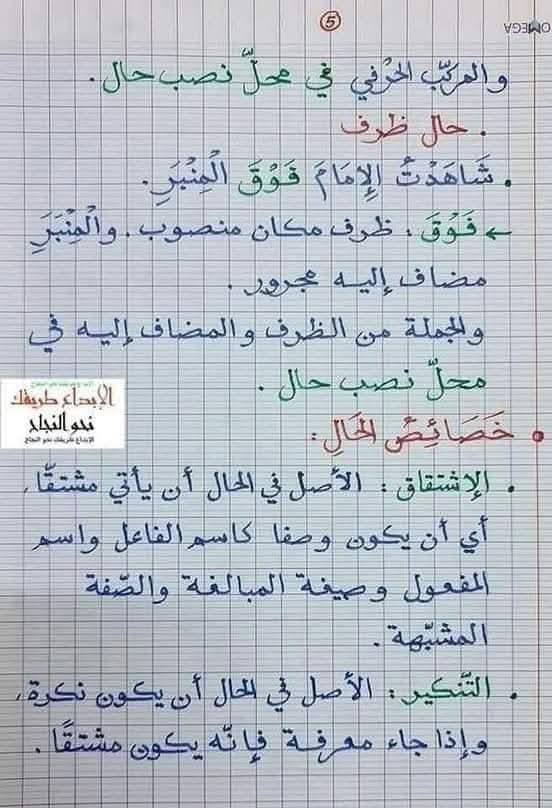 5
OMEGA
والمركّب الحَرْفي في محلّ نصب حال.
. حال ظرف
. شَاهَدْتُ الإِمَامَ فَوْقَ الْمِنْبَرِ.
← فَوْقَ : ظرف مكان منصوب. والْمِنْبَرِ
مضاف إليه مجرور.
والجملة من الظرف والمضاف إليه في
محلّ نصب حال.
الإبداع طريقك نحو النجاح
الإبداع طريقك
نحو النجاح
الإبداع طريقك نحو النجاح
• خَصَائِصُ الحَالِ:
. الإشتقاق : الأصل في الحال أن يأتي مشتقّا،
أي أن يكون وصفا كاسم الفاعل واسم
المفعول وصيغة المبالغة والصّفة
المشبّهة.
. التّنكير : الأصل في الحال أن يكون نكرة،
وإذا جاء معرفة فإنّه يكون مشتقًا.